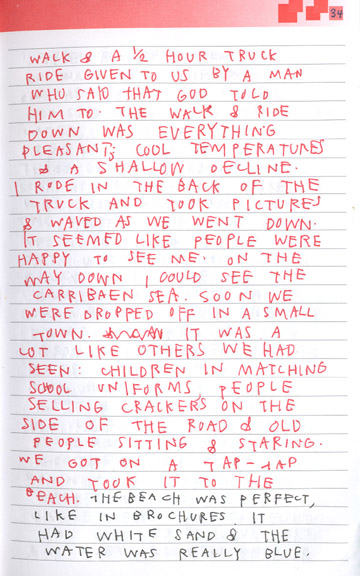 34
WALK & A ½ HOUR TRUCK
RIDE GIVEN TO US BY A MAN
WHO SAID THAT GOD TOLD
HIM TO. THE WALK & RIDE
DOWN WAS EVERYTHING
PLEASANT; COOL TEMPERATURES
& A SHALLOW DECLINE.
I RODE IN THE BACK OF THE
TRUCK AND TOOK PICTURES
& WAVED AS WE WENT DOWN.
IT SEEMED LIKE PEOPLE WERE
HAPPY TO SEE ME. ON THE
WAY DOWN I COULD SEE THE
CARRIBAEN SEA. SOON WE
WERE DROPPED OFF IN A SMALL
TOWN. IT WAS A
LOT LIKE OTHERS WE HAD
SEEN: CHILDREN IN MATCHING
SCHOOL UNIFORMS, PEOPLE
SELLING CRACKERS ON THE
SIDE OF THE ROAD & OLD
PEOPLE SITTING & STARING.
WE GOT ON A TAP-TAP
AND TOOK IT TO THE
BEACH. THE BEACH WAS PERFECT,
LIKE IN BROCHURES. IT
HAD WHITE SAND & THE
WATER WAS REALLY BLUE.